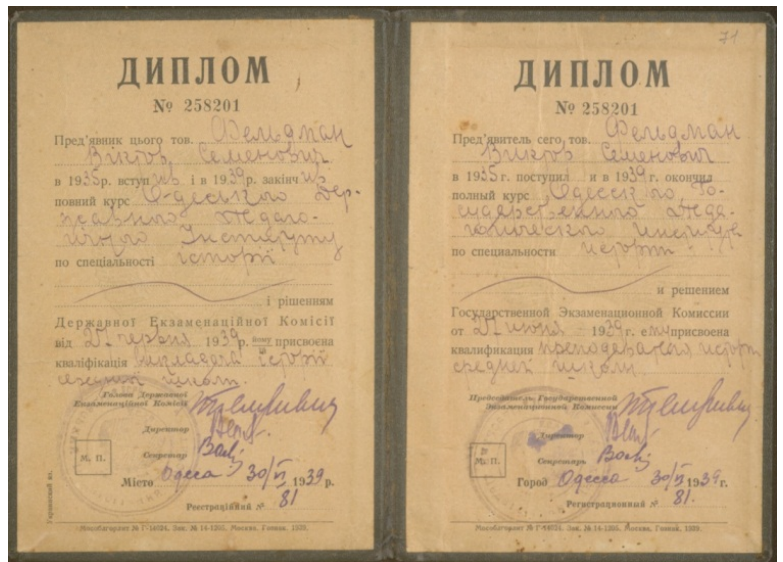 ДИПЛОМ
№ 258201
Пред'явник цього тов. Фельдман
Віктор Семенович
в 1935р. вступив і в 1939р. закінчив
повний курс Одеського Дер-
жавного Педаго-
гічного Інституту
по спеціальності історії
і рішенням
Державної Екзаменаційної Комісії
від червня 1939р. йому присвоєна
кваліфікація викладача історії
середньої школи.
Голова Державної
Екзаменаційної Комісії
Директор
Секретар
М. П.
Місто Одесса 30/VI 1939 р.
Реєстраційний № 81
Украинский яз.
Мособлгорлит № Г-14024, Зак. № 14-1265. Москва. Гознак. 1939.
71
ДИПЛОМ
№ 258201
Пред'явитель сего тов. Фельдман
Виктор Семенович
в 1935 г. поступил и в 1939 г. окончил
полный курс Одесского Го-
сударственного Педа-
гогического Института
по специальности истории
и решением
Государственной Экзаменационной Комиссии
от июня 1939 г. ему присвоена
квалификация преподавателя истории
средней школы.
Председатель Государственной
Экзаменационной Комиссии
Директор
Секретарь
М. П.
Город Одесса 30/VI 1939 г.
Регистрационный № 81.
Мособлгорлит № Г-14024, Зак. № 14-1265. Москва. Гознак. 1939.